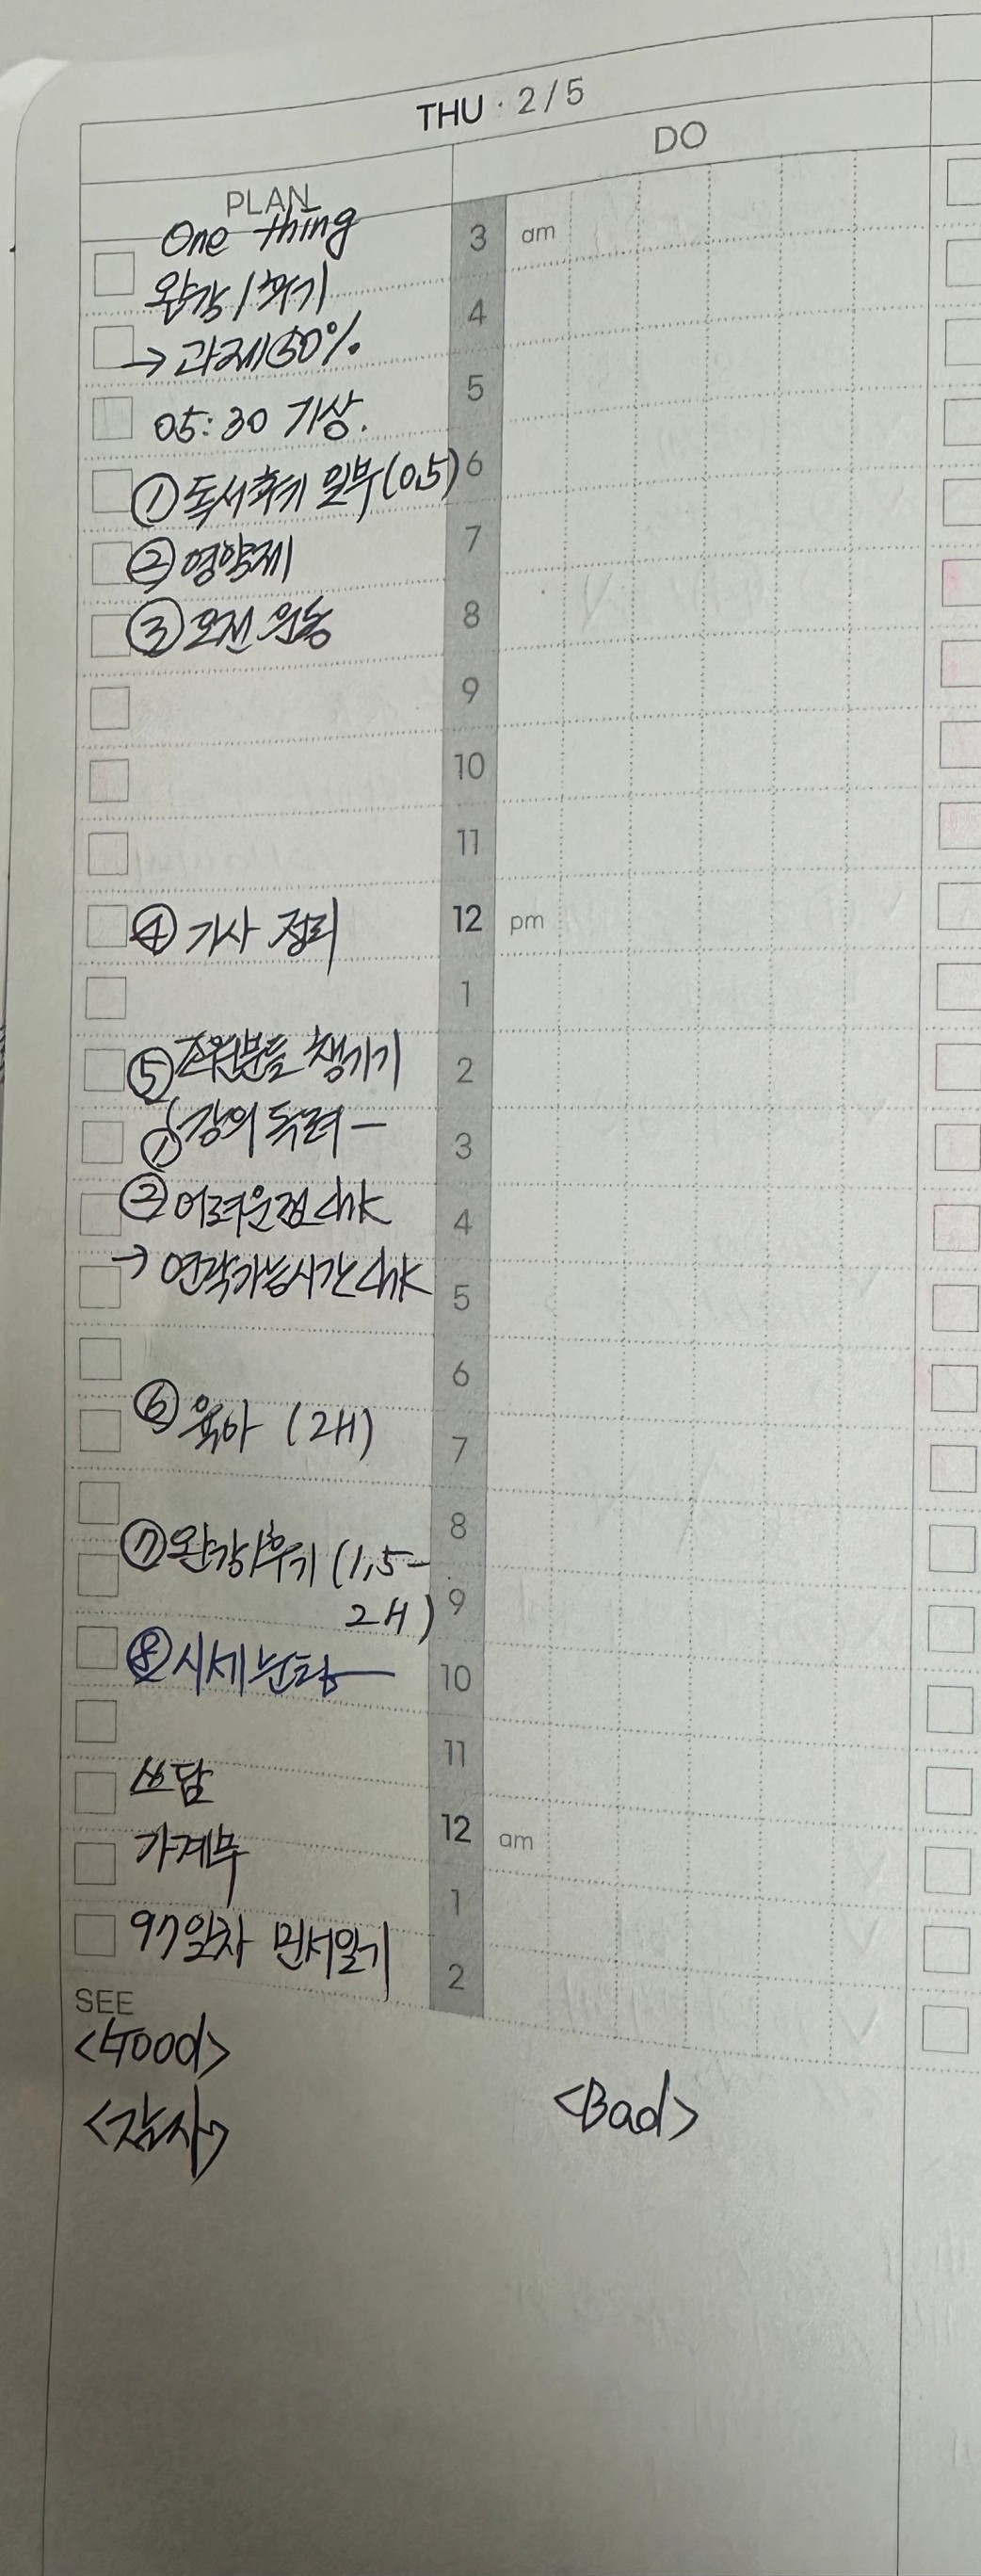 THU · 2/5
PLAN
DO
One thing
완강/후기
→ 과제 50%
05:30 기상.
① 독서후기 일부(0.5)
② 영양제
③ 오전 운동
④ 기사 정리
⑤ 조원분들 챙기기
① 강의 독려 —
② 어려운점 chk
→ 연락가능시간 chk
⑥ 육아 (2H)
⑦ 완강/후기 (1.5-
2H)
⑧ 시세
쓰담
가계부
97일차 민서일기
3 am
4
5
6
7
8
9
10
11
12 pm
1
2
3
4
5
6
7
8
9
10
11
12 am
1
2
SEE
<Good>
<감사>
<Bad>